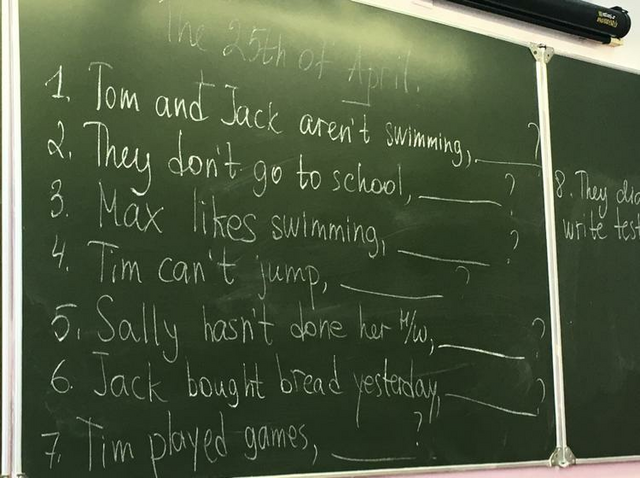 The 25th of April.
1. Tom and Jack aren't swimming, ______?
2. They don't go to school, ______?
3. Max likes swimming, ______?
4. Tim can't jump, ______?
5. Sally hasn't done her H/w, ______?
6. Jack bought bread yesterday, ______?
7. Tim played games, ______?
8. They did
write test